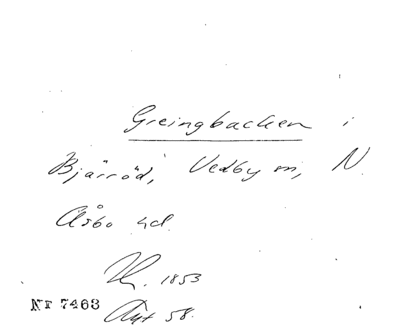 Greingbacken i
Bjärröd, Vedby sn, N.
Åsbo hd.
1853
Nr 7463
58.